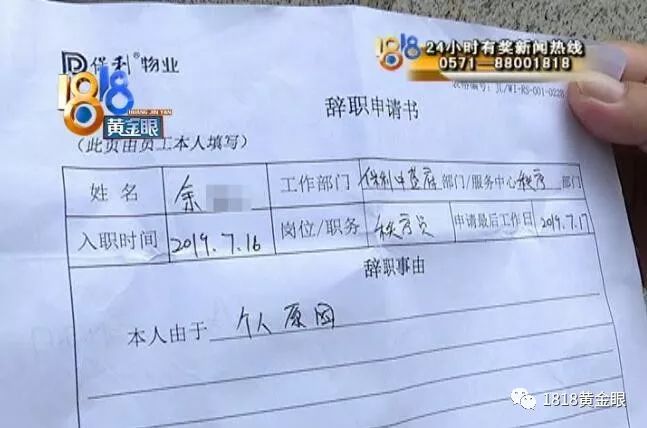 保利®物业
1818
24小时有奖新闻热线
0571-88001818
1818
HUANG JIN YAN
黄金眼
表格编号：JL/WI-RS-001-022B
辞职申请书
（此页由员工本人填写）
姓名 余 工作部门 保利 部门/服务中心 秩序 部门
入职时间 2019.7.16 岗位/职务 秩序员 申请最后工作日 2019.7.17
辞职事由
本人由于 个人原因
1818黄金眼